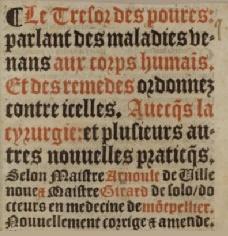 ¶Le Tresor des poures:
parlant des maladies ve-
nans aux corps humaĩs.
Et des remedes ordonnez
contre icelles. Auecq̃s la
cyrurgie: et plusieurs au-
tres nouuelles praticq̃s.
Selon Maistre Arnoult de Ville
noue & Maistre Girard de solo/ do
cteurs en medecine de mõtpellier.
Nouuellement corrige & amende.